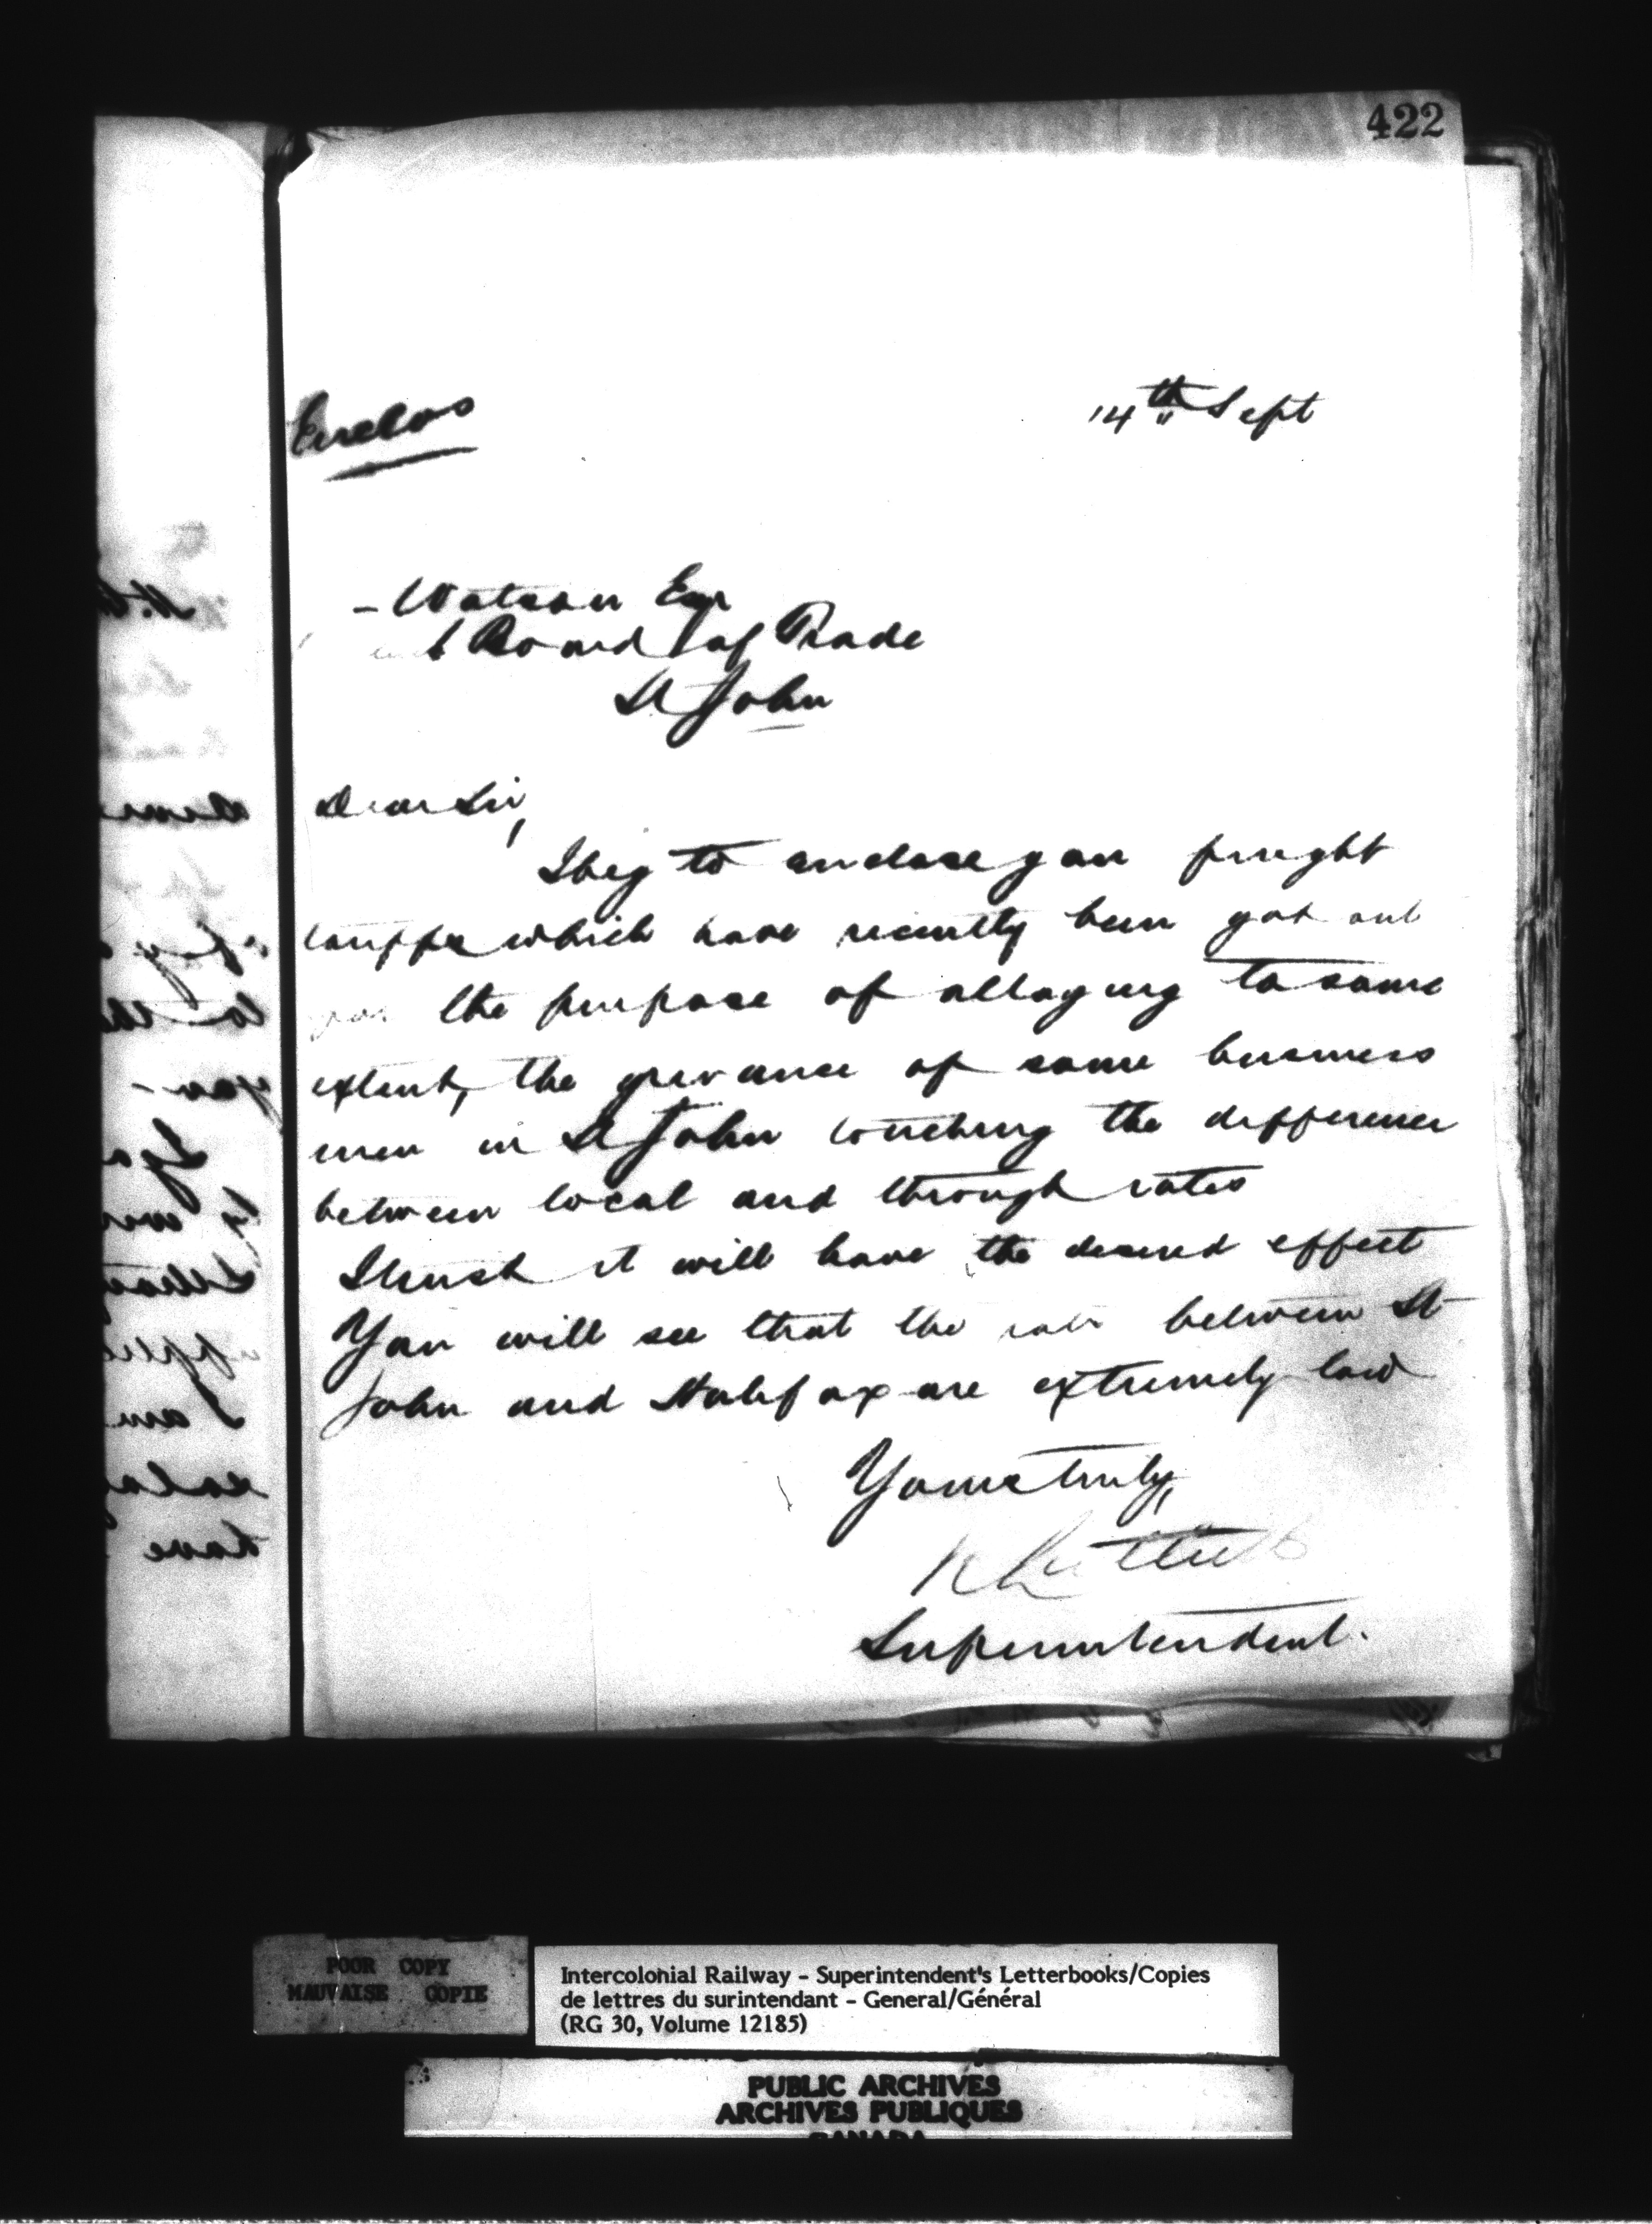 422
Enclos
14th Sept
- Watson Esqr
Board of Trade
St John
Dear Sir,
I beg to enclose you freight
tariffs which have recently been got out
for the purpose of allaying to some
extent, the grievance of some business
men in St John touching the difference
between local and through rates
I trust it will have the desired effect
You will see that the rates between St
John and Halifax are extremely low
Yours truly,
Superintendent.
POOR COPY
MAUVAISE COPIE
Intercolonial Railway - Superintendent's Letterbooks/Copies
de lettres du surintendant - General/Général
(RG 30, Volume 12185)
PUBLIC ARCHIVES
ARCHIVES PUBLIQUES
CANADA